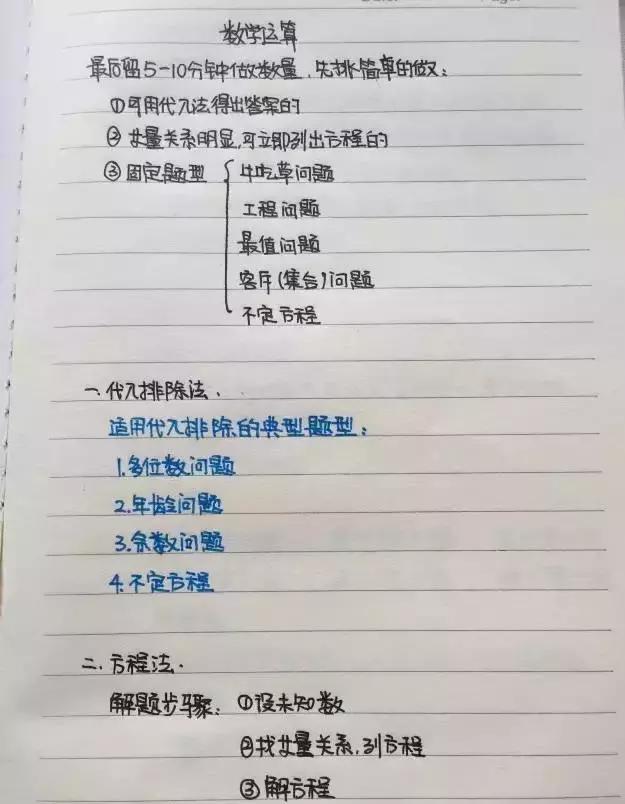 数学运算
最后留5-10分钟做数量,先挑简单的做:
①可用代入法得出答案的
②数量关系明显,可立即列出方程的
③固定题型 { 牛吃草问题
工程问题
最值问题
容斥(集合)问题
不定方程
一、代入排除法.
适用代入排除的典型题型:
1.多位数问题
2.年龄问题
3.余数问题
4.不定方程
二、方程法.
解题步骤: ①设未知数
②找数量关系,列方程
③解方程